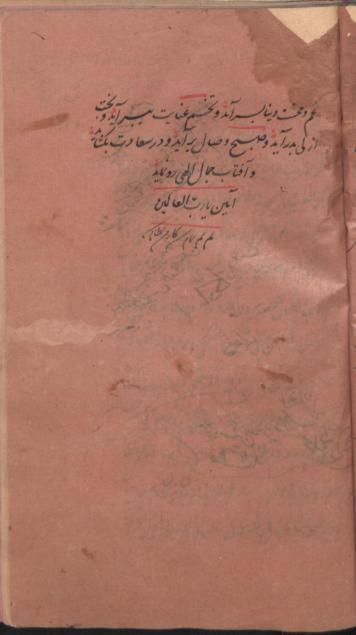 غم و محنت دنیا بسر آید و تخم عنایت ببر آید و بخت
ازلی بدر آید و صبح وصال بر آید و در سعادت بکشاید
و آفتاب جمال الهی رو نماید
آمین یا رب العالمین
تم تم تمام